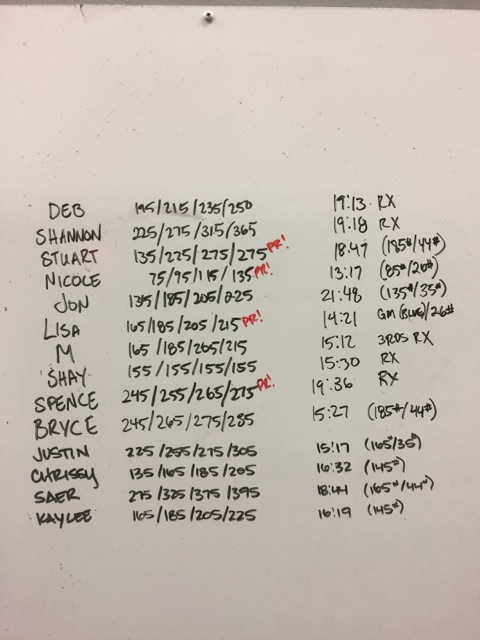 DEB 195/215/235/250 19:13 RX
SHANNON 225/275/315/365 19:18 RX
STUART 135/225/275/275 PR! 18:47 (185#/44#)
NICOLE 75/95/115/135 PR! 13:17 (85#/20#)
JON 135/185/205/225 21:48 (135#/35#)
LISA 165/185/205/215 PR! 14:21 GM (BLUE)/26#
M 165/185/205/215 15:12 3RDS RX
SHAY 155/155/155/155 15:30 RX
SPENCE 245/255/265/275 PR! 19:36 RX
BRYCE 245/265/275/285 15:27 (185#/44#)
JUSTIN 225/255/275/305 15:17 (165#/35#)
CHRISSY 135/165/185/205 16:32 (145#)
SAER 275/325/375/395 18:44 (165#/44#)
KAYLEE 165/185/205/225 16:19 (145#)